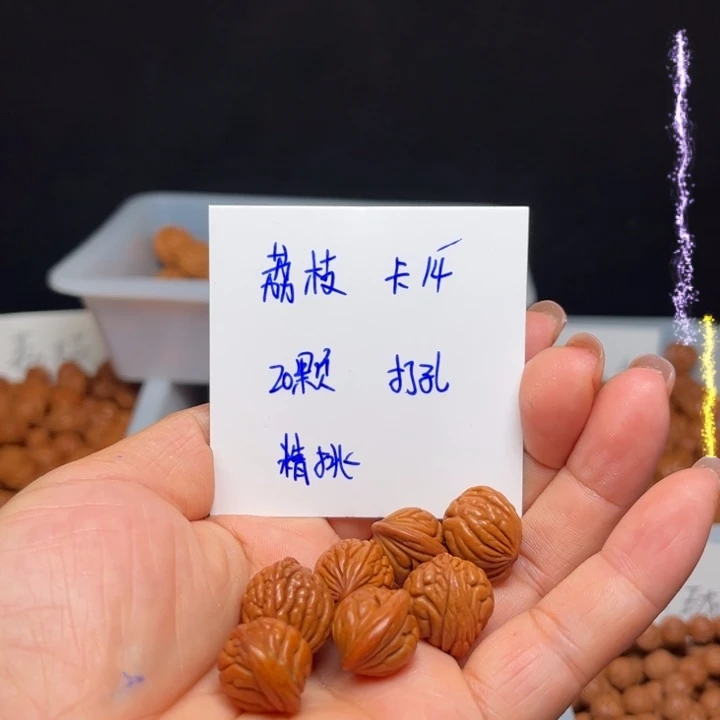 荔枝 卡14
20颗 打孔
精挑